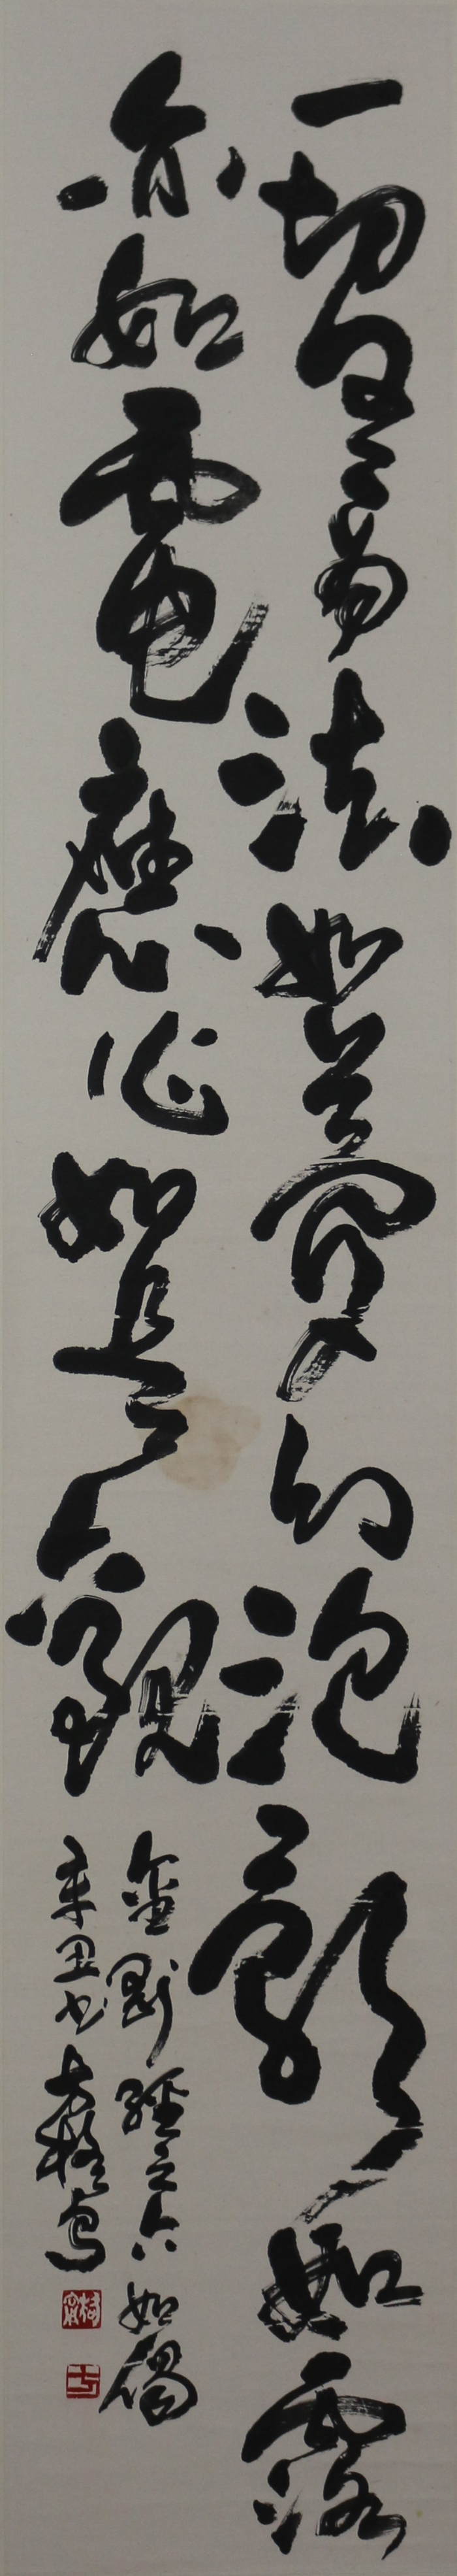 一切有為法如夢幻泡影如露
亦如電應作如是觀
金剛經之六如偈
辛丑书